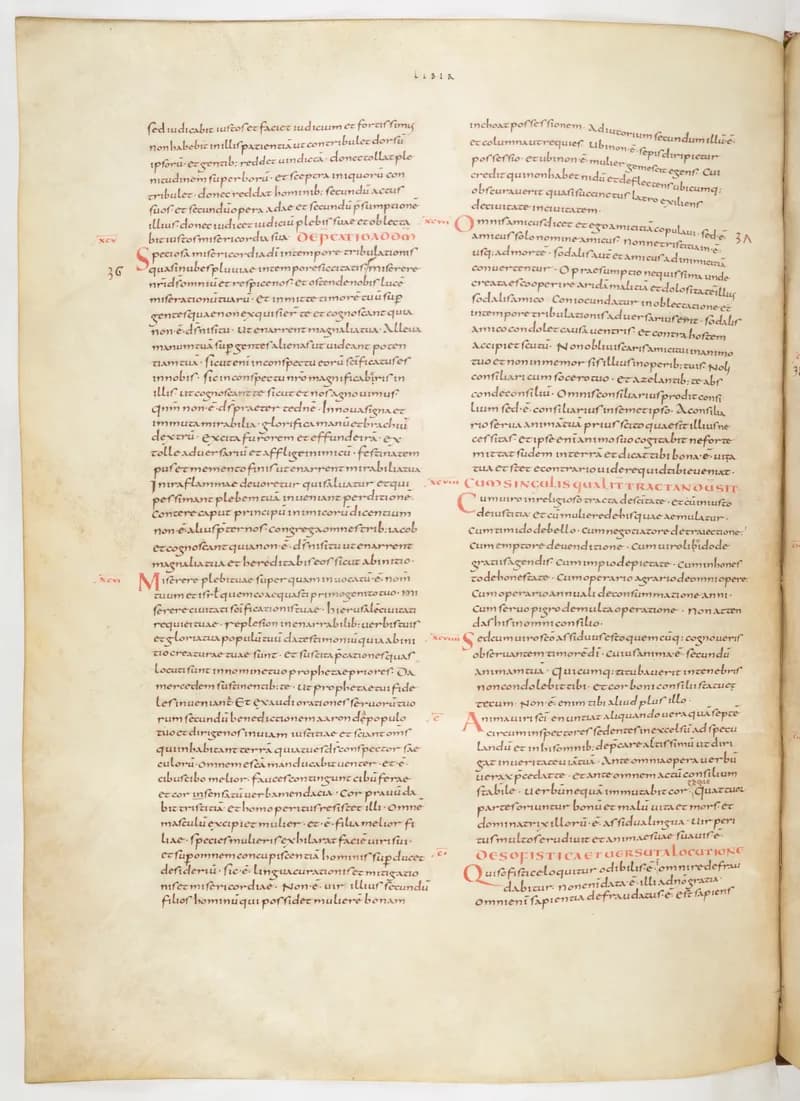 LIBER
sed iudicabit iustos et faciet iudicium et fortissimus
non habebit in illis patientiā ut contribulet dorsū
ipsorū · et gentib; reddet uindictā · donec tollat ple
nitudinem superborū · et sceptra iniquorū con
tribulet · donec reddat hominib; secundū actus
suos et secundū opera adae et secundū p̄sumptionē
illius donec iudicet iudiciū plebis suae et oblecta
bit iustos misericordia sua · DEPCATIO AD DM̄
XCV
Speciosa misericordia dī in tempore tribulationis
36
quasi nubes pluuiae in tempore siccitatis · miserere
nr̄i ds̄ omniū et respice nos · et ostende nobis lucē
miserationū tuarū · Et inmitte timorē tuū sup
gentes quae non exquisier te et cognoscant quia
non · ē · ds̄ nisi tu · Ut enarrent magnalia tua · Alleua
manum tuā sup gentes alienas ut uideant poten
tiam tuā · sicut enī in conspectu eorū sc̄ificatus es
in nobis · sic in conspectu nr̄o magnificaberis in
illis ut cognoscant te sicut et nos agnouimus
qnm̄ non · ē · ds̄ praeter te dn̄e · Innoua signa et
immuta mirabilia · glorifica manū et brachiū
dextrū · Excita furorem et effunde irā · Ex
tolle aduersariū et afflige inimicū · festina tem
pus et memento finis ut enarrent mirabilia tua
In ira flammae deuoretur qui saluatur et qui
pessimant plebem tuā inueniant perditionē
Contere caput principū inimicorū dicentium
non · ē · alius p̄ter nos · congrega omnes trib; iacob
et cognoscant quia non · ē · ds̄ nisi tu ut enarrent
magnalia tua et hereditabis eos sicut ab initio ·
XCVI
Miserere plebi tuae super quam inuocatū · ē · nom̄
tuum et isrl̄ quem coaequasti primogenito tuo · mi
serere ciuitati sc̄ificationis tuae · hierusalē ciuitati
requiei tuae · reple sion inenarrabilib; uerbis tuis
et gloria tua populū tuū · da testimoniū quia ab ini
tio creaturae tuae sunt · et suscita p̄cationes quas
locuti sunt in nomine tuo prophetae priores · Da
mercedem sustinentib; te · ut prophetae tui fide
les inueniant̄ · Et exaudi orationes seruorū tuo
rum secundū benedictionem aaron de populo
tuo et dirige nos in uiam iustitiae et sciant oms̄
qui inhabitant terrā quia tu es ds̄ conspector sae
culorū · Omnem escā manducabit uenter · et · ē ·
cibus cibo melior · fauces contingunt cibū ferae
et cor insensatū uerba mendacia · Cor prauū da
bit tristitiā et homo peritus resistet illi · Omnē
masculū excipiet mulier · et · ē · filia melior fi
liae · species mulieris exhilarat faciē uiri sui ·
et sup omnem concupiscentiā hominis sup ducet
desideriū · sic · ē · lingua curationis et mitigatio
nis et misericordiae · Non · ē · uir illius secundū
filios hominū qui possidet mulierē bonam
inchoat possessionem · Adiutorium secundum illū · ē ·
et columna ut requies · Ubi non · ē · sepis diripietur
possessio · et ubi non · ē · mulier gemescit egens · Cui
credit qui non habet nidū et deflectens ubicumq;
obscurauerit quasi succinctus latro exiliens
de ciuitate in ciuitatem ·
XCVII
Omnis amicus dicet et ego amicitiā copulaui · sed · ē ·
37
amicus solo nomine amicus · Nonne tristitia in · ē ·
usq; ad morte · sodalis autē et amicus ad inimicitiā
conuertentur · O praesumptio nequissima unde
creata es cooperire aridā malitia et dolositate illius
sodalis amico coniocundatur in oblectatione et
in tempore tribulationis aduersarius erit · sodalis
amico condolet causa uentris · et contra hostem
accipiet scutū · Non obliuiscaris amici tui in animo
tuo et non inmemor sis illius in operib; tuis · Noli
consiliari cum socero tuo · et a zelantib; te abs
conde consiliū · Omnis consiliarius prodit consi
lium sed · ē · consiliarius in semet ipso · A consilia
rio serua animā tuā prius scito quae sit illius ne
cessitas · et ipse enī animo suo cogitabit ne forte
mittat sudem in terrā et dicat tibi bona · ē · uita
tua et stet e contrario uidere quid tibi eueniat ·
XCVIII
CUM SINCULIS QUALIT TRACTANDŪ SIT
Cum uiro inreligioso tracta de sc̄itate · et cū iniusto
de iustitia · et cū muliere de his quae aemulatur ·
Cum timido de bello · cum negotiatore de traiectione ·
Cum emptore de uenditione · Cum uiro libido de
gratiis agendis · Cum impio de pietate · Cum inhones
to de honestate · Cum operario agrario de omni opere ·
Cum operario annuali de consummatione anni ·
Cum seruo pigro de multa operatione · Non atten
das his in omni consilio ·
XCVIIII
Sed cum uiro sc̄o assiduus esto quemcūq; cognoueris
obseruantem timorē dī · Cuius anima · ē · secundū
animam tuā · Quicumq; titubauerit in tenebris
non condolebit tibi · Et cor boni consilii statuet
tecum · Non · ē · enim tibi aliud plus illo ·
C
Anima uiri sc̄i enuntiat aliquando uera quā septē
circum inspectores sedentes in excelsū ad specu
landū et in his omnib; dep̄care altissimū ut diri
gat in ueritate uiā tuā · Ante omnia opera uerbū
uerax p̄cedat te · et ante omnem actū consilium
stabile · uerbū nequā immutabit cor · ex quo Quattuor
partes oriuntur bonū et malū uita et mors et
dominatrix illorū · ē · assidua lingua · Uir peri
tus multos erudiuit et animae suae suauis · ē ·
CI
DE SOFISTICA ET UERSUTA LOCUTIONE
Qui sofistice loquitur odibilis · ē · omni re defrau
dabitur · non enī data · ē · illi a dn̄o gratia ·
Omni enī sapientia defraudatus · ē · Est sapiens